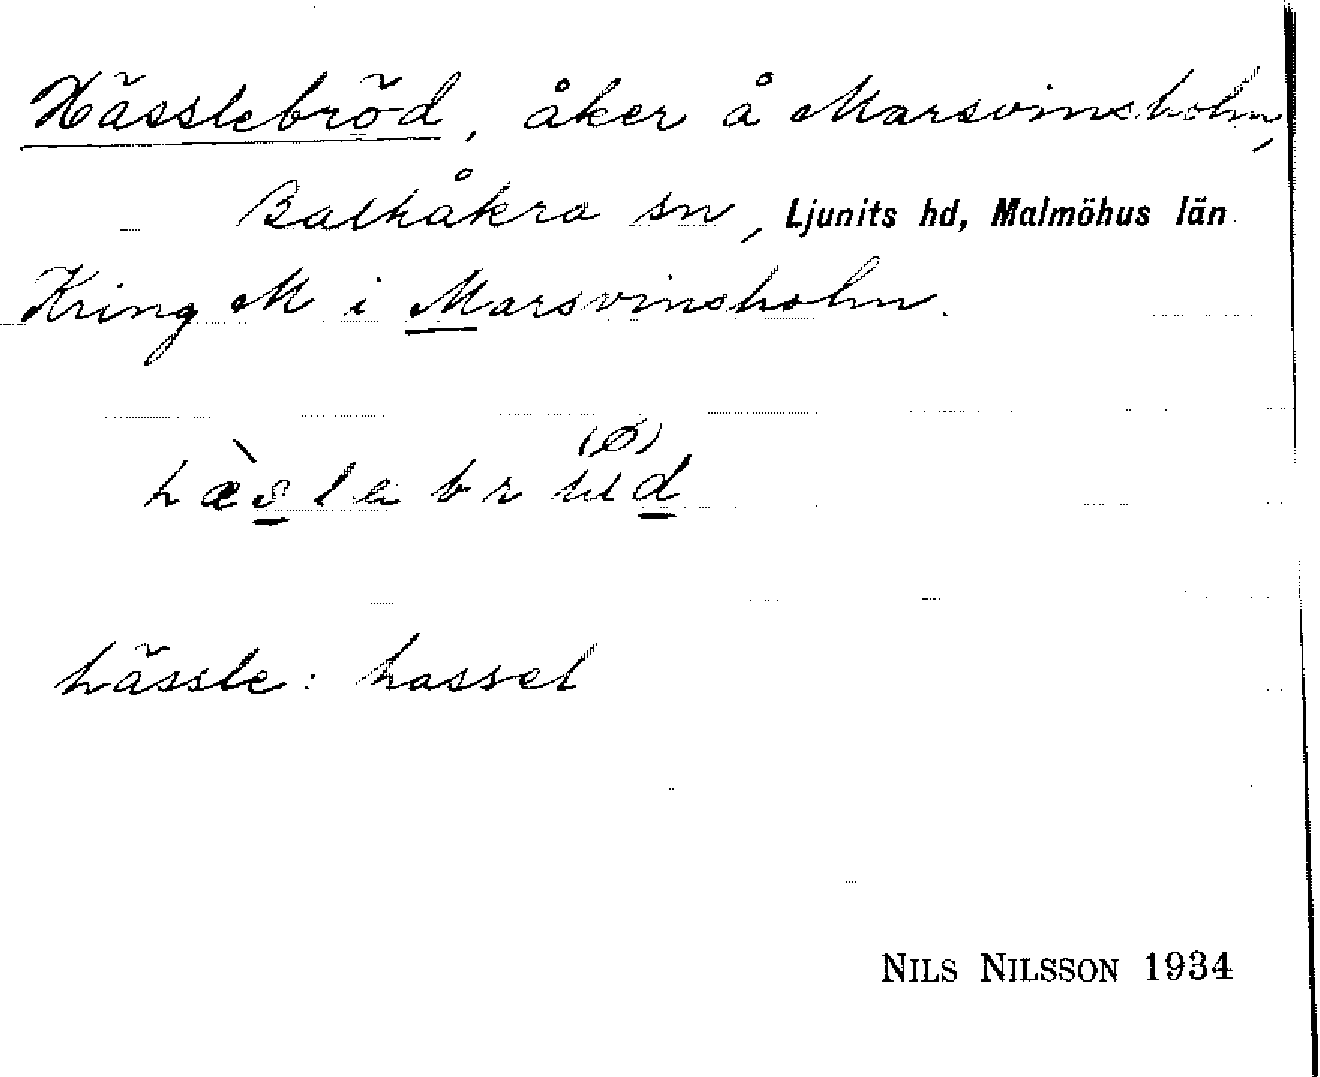 Hässlebröd, åker å Marsvinsholm,
Balkåkra sn, Ljunits hd, Malmöhus län
Kring M i Marsvinsholm.
(Ø)
hässle: hassel
NILS NILSSON 1934